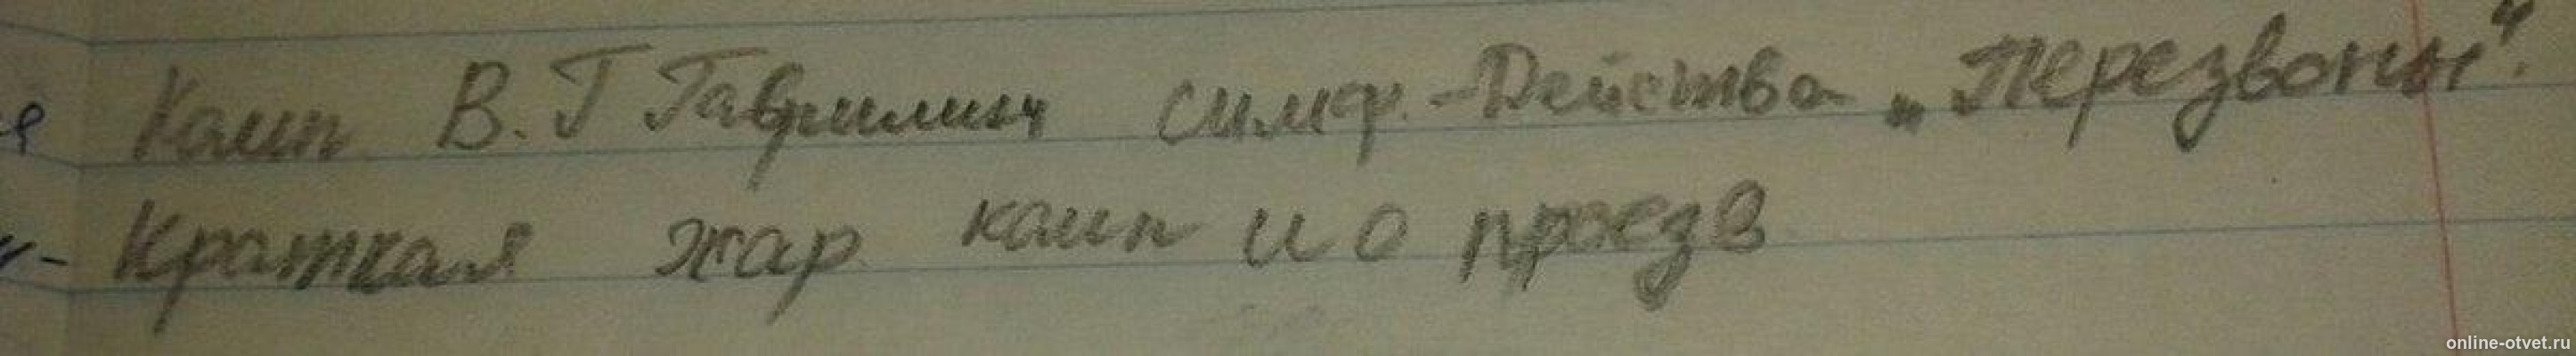 я Камп В. Г Гаврилин симф. - Действа „Перезвоны“.
- Краткая жар камп и о произв
online-otvet.ru